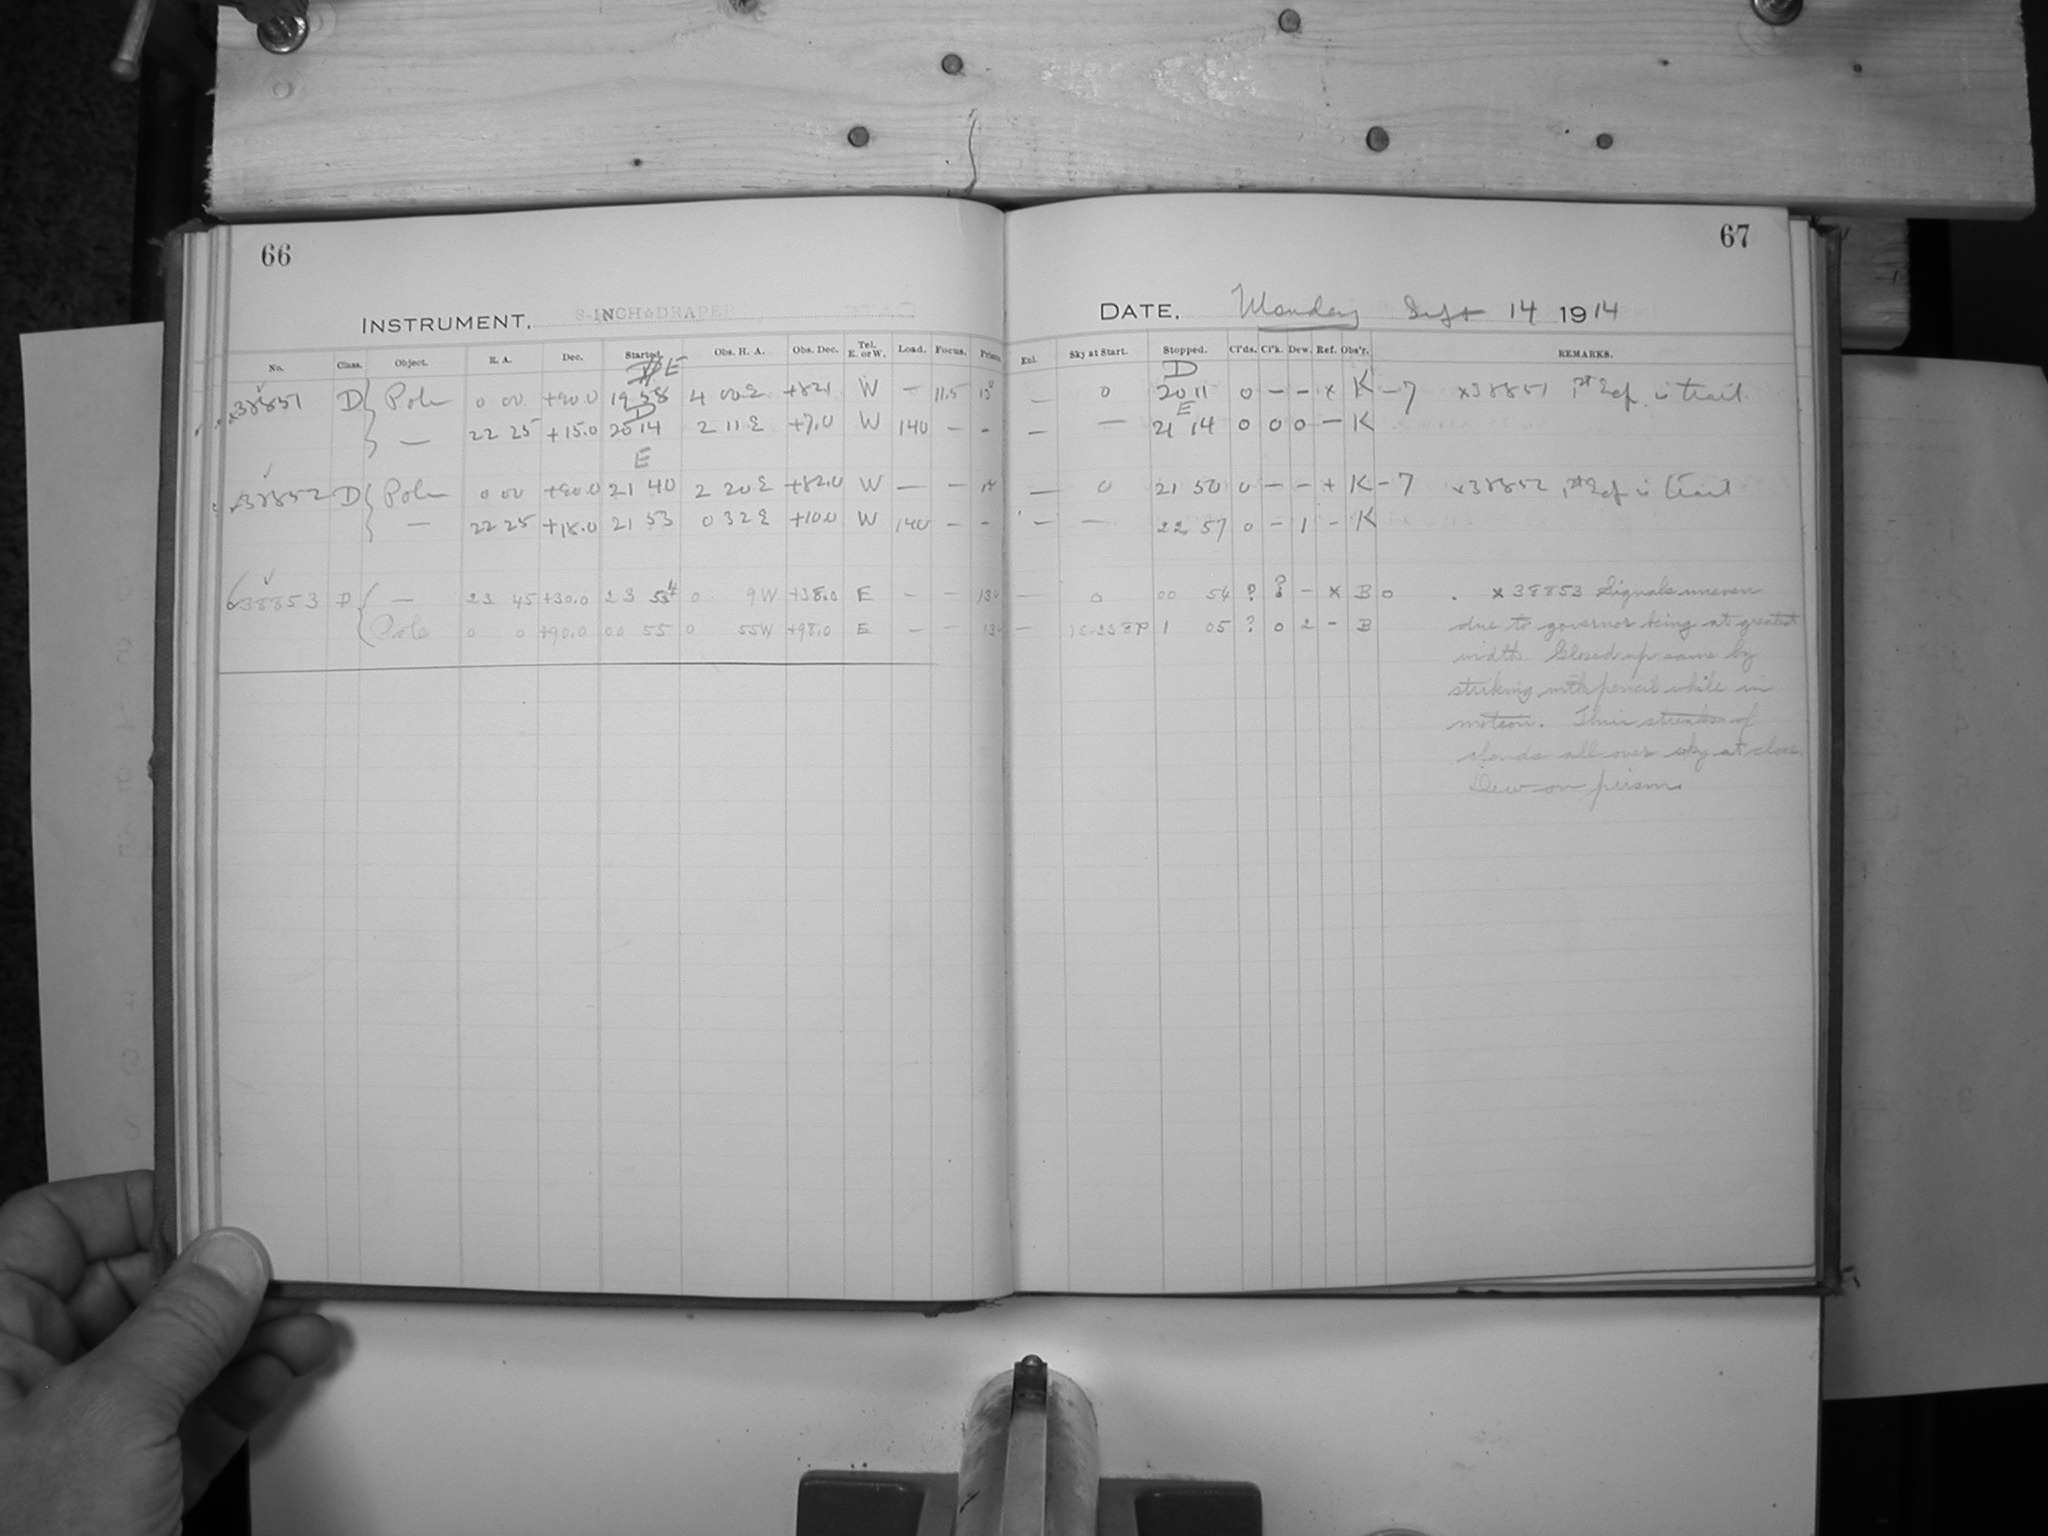 66
67
INSTRUMENT. 8-INCH DRAPER
DATE. Monday Sept 14 1914
No. Class. Object. R. A. Dec. Started. Obs. H. A. Obs. Dec. Tel. E. or W. Load. Focus. Prism. Exl. Sky at Start. Stopped. Cl'ds. Cl'k. Dew. Ref. Obs'r. REMARKS.
E D
x38851 D Pole 0 00 +90.0 19 58 4 00 E +82.1 W – 11.5 13 — 0 20 11 0 – – + K –7 x38851 1st Exp. is trail.
D E
— 22 25 +15.0 20 14 2 11 E +7.0 W 140 – – — — 21 14 0 0 0 – K
E
x38852 D Pole 0 00 +90.0 21 40 2 20 E +82.0 W — – — 0 21 50 0 – – + K –7 x38852 1st Exp is trail
— 22 25 +15.0 21 53 0 32 E +10.0 W 140 – – — — 22 57 0 – 1 – K
38853 D — 23 45 +30.0 23 54 0 9W +38.0 E – – 13 — 0 00 54 ? ? – x B 0 x 38853 Signals uneven
Pole 0 0 +90.0 00 55 0 55W +98.0 E – – 13 — 1 05 ? 0 2 – B due to governor being at greatest
width. Closed up same by
striking with pencil while in
motion. Thin streaks of
clouds all over sky at close.
Dew on prism